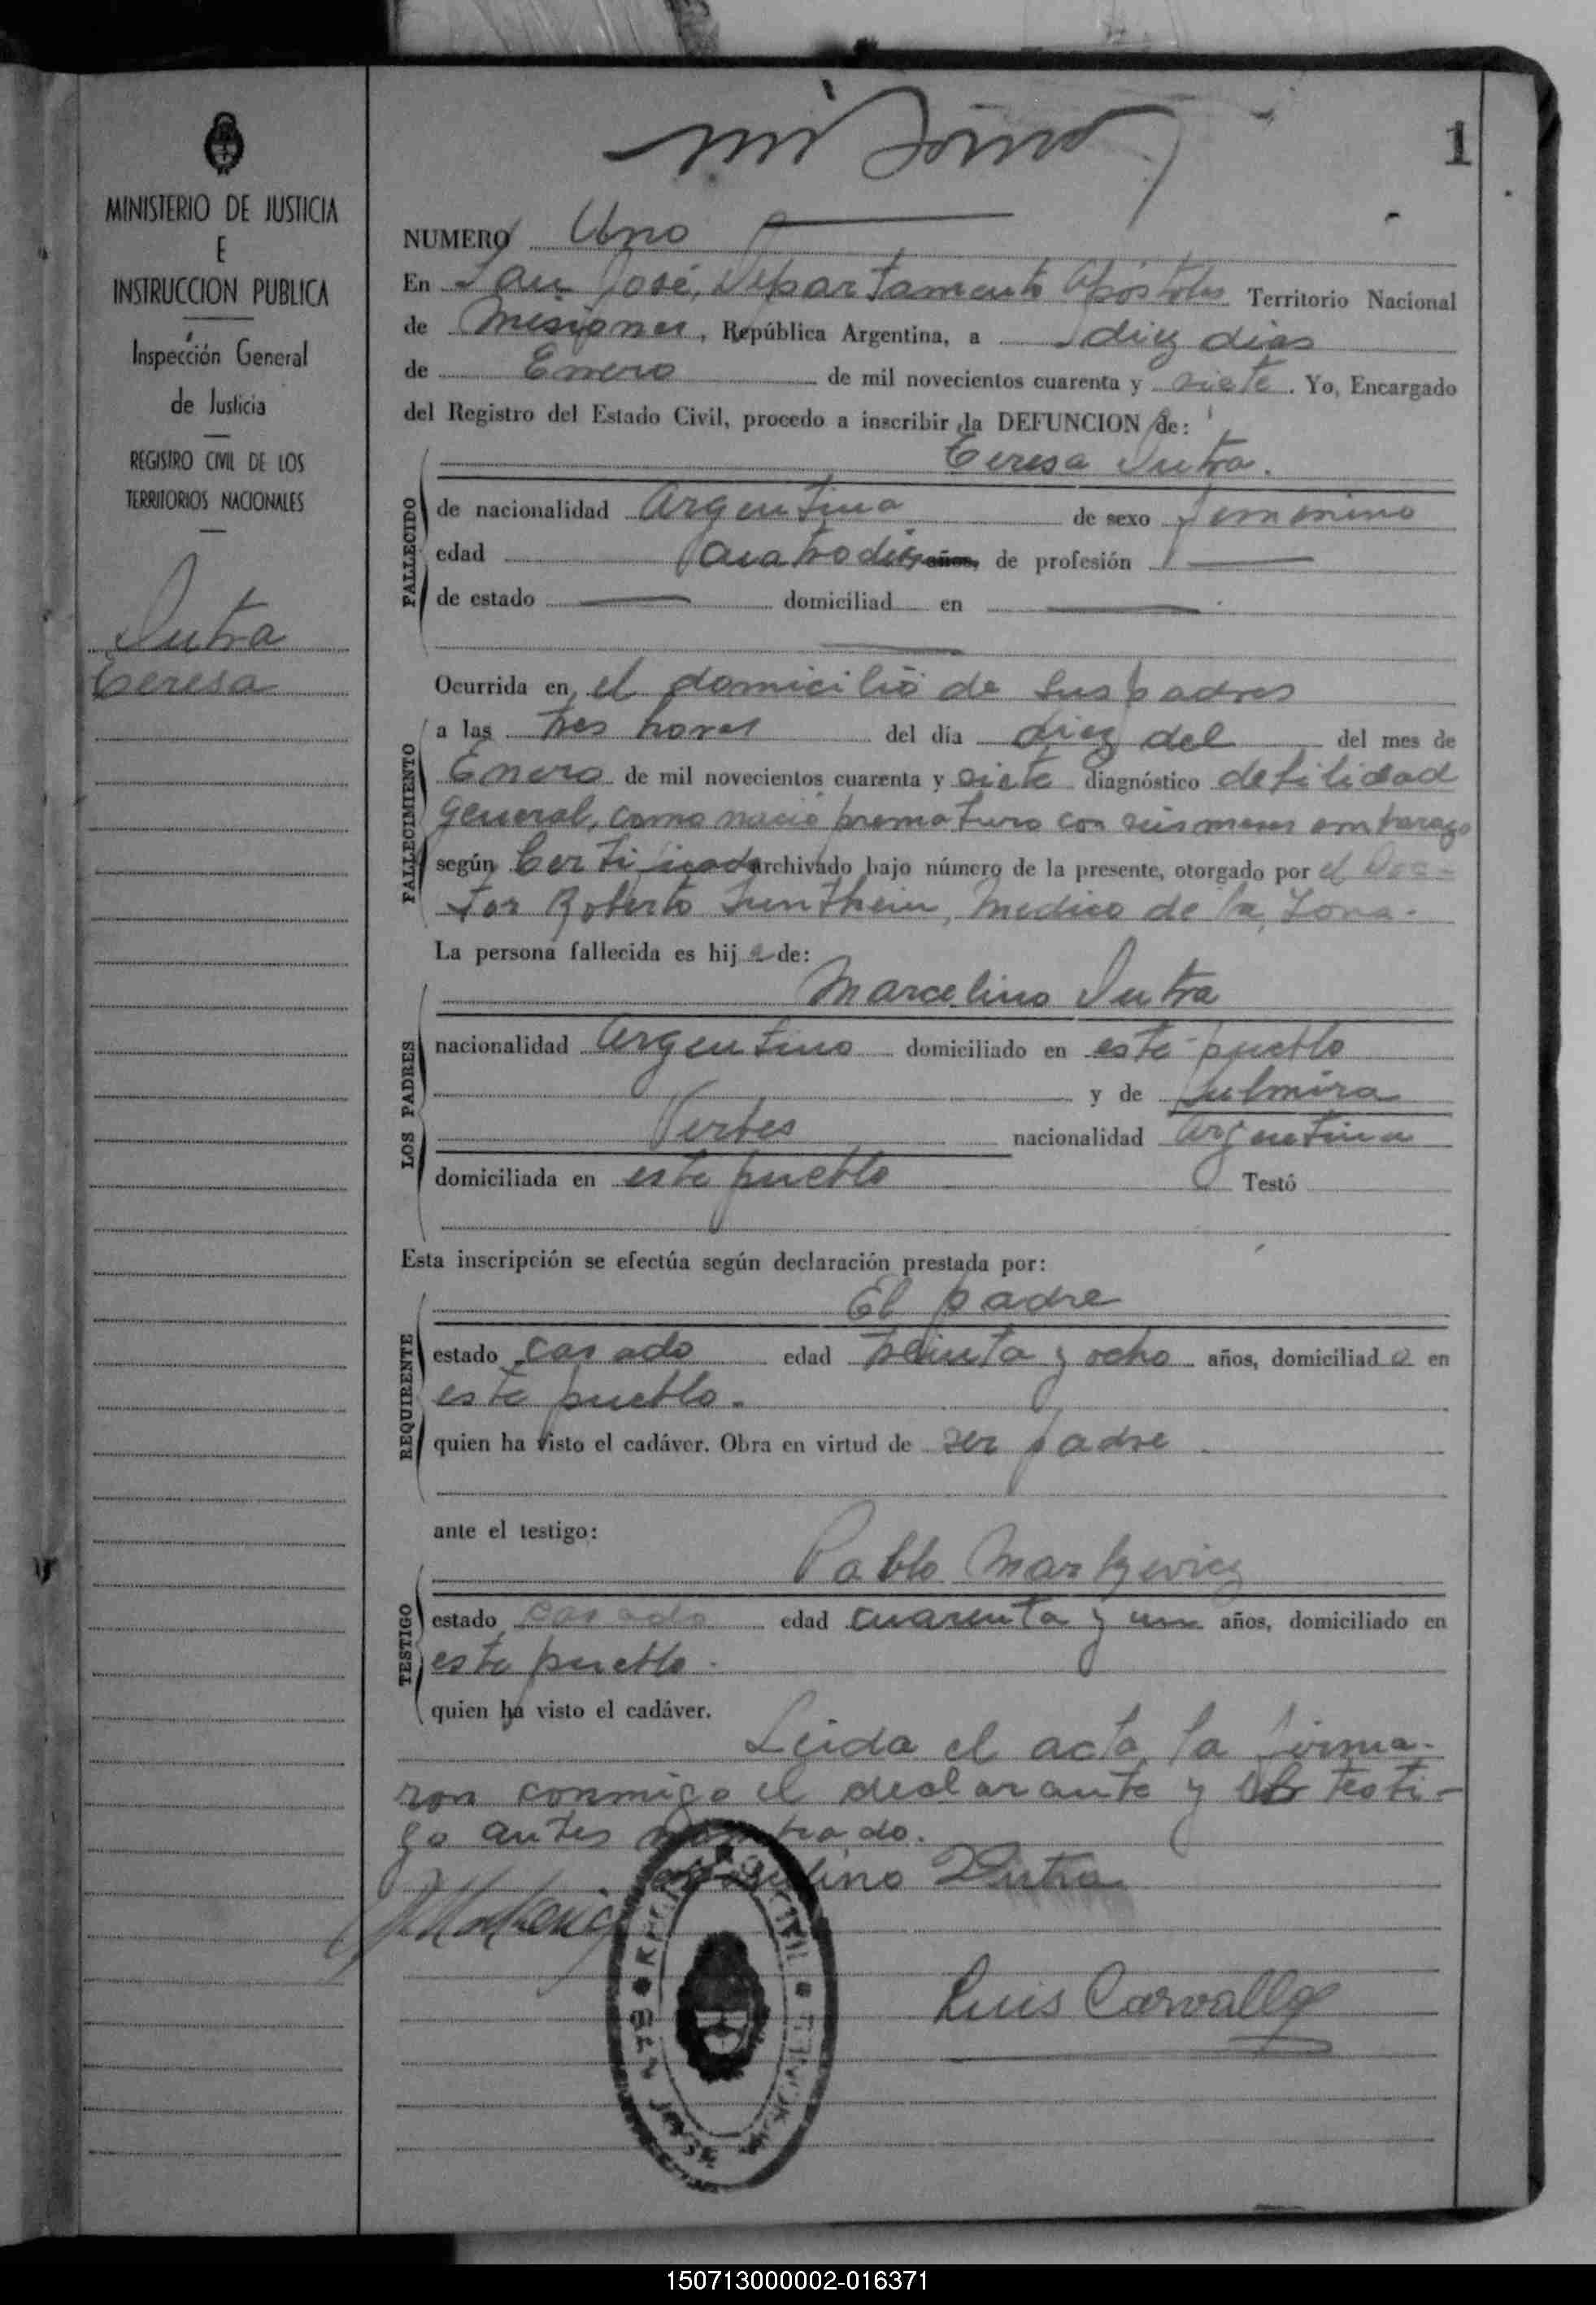 1
MINISTERIO DE JUSTICIA
E
INSTRUCCION PUBLICA
Inspección General
de Justicia
REGISTRO CIVIL DE LOS
TERRITORIOS NACIONALES
Dutra
Teresa
NUMERO Uno
En San José, Departamento Apóstoles Territorio Nacional
de Misiones, República Argentina, a diez dias
de Enero de mil novecientos cuarenta y siete. Yo, Encargado
del Registro del Estado Civil, procedo a inscribir la DEFUNCION de:
Teresa Dutra.
FALLECIDO
de nacionalidad Argentina de sexo femenino
edad cuatro dias años, de profesión
de estado domiciliad en
FALLECIMIENTO
Ocurrida en el domicilio de sus padres
a las tres horas del día diez del del mes de
Enero de mil novecientos cuarenta y siete diagnóstico debilidad
general, como nació prematuro con seis meses embarazo
según Certificado archivado bajo número de la presente, otorgado por el Doc-
tor Roberto, Medico de la Zona.
La persona fallecida es hija de:
LOS PADRES
Marcelino Dutra
nacionalidad Argentino domiciliado en este pueblo
y de Julmira
Verbes nacionalidad Argentina
domiciliada en este pueblo Testó
Esta inscripción se efectúa según declaración prestada por:
REQUIRENTE
El padre
estado casado edad treinta y ocho años, domiciliado en
este pueblo.
quien ha visto el cadáver. Obra en virtud de ser padre.
ante el testigo:
TESTIGO
Pablo Markyevicz
estado casado edad cuarenta y un años, domiciliado en
este pueblo.
quien ha visto el cadáver.
Leida el acta, la firma-
ron conmigo el declarante y el testi-
go antes nombrado.
Marcelino Dutra
Luis Carvallo
SAN JOSE
150713000002-016371